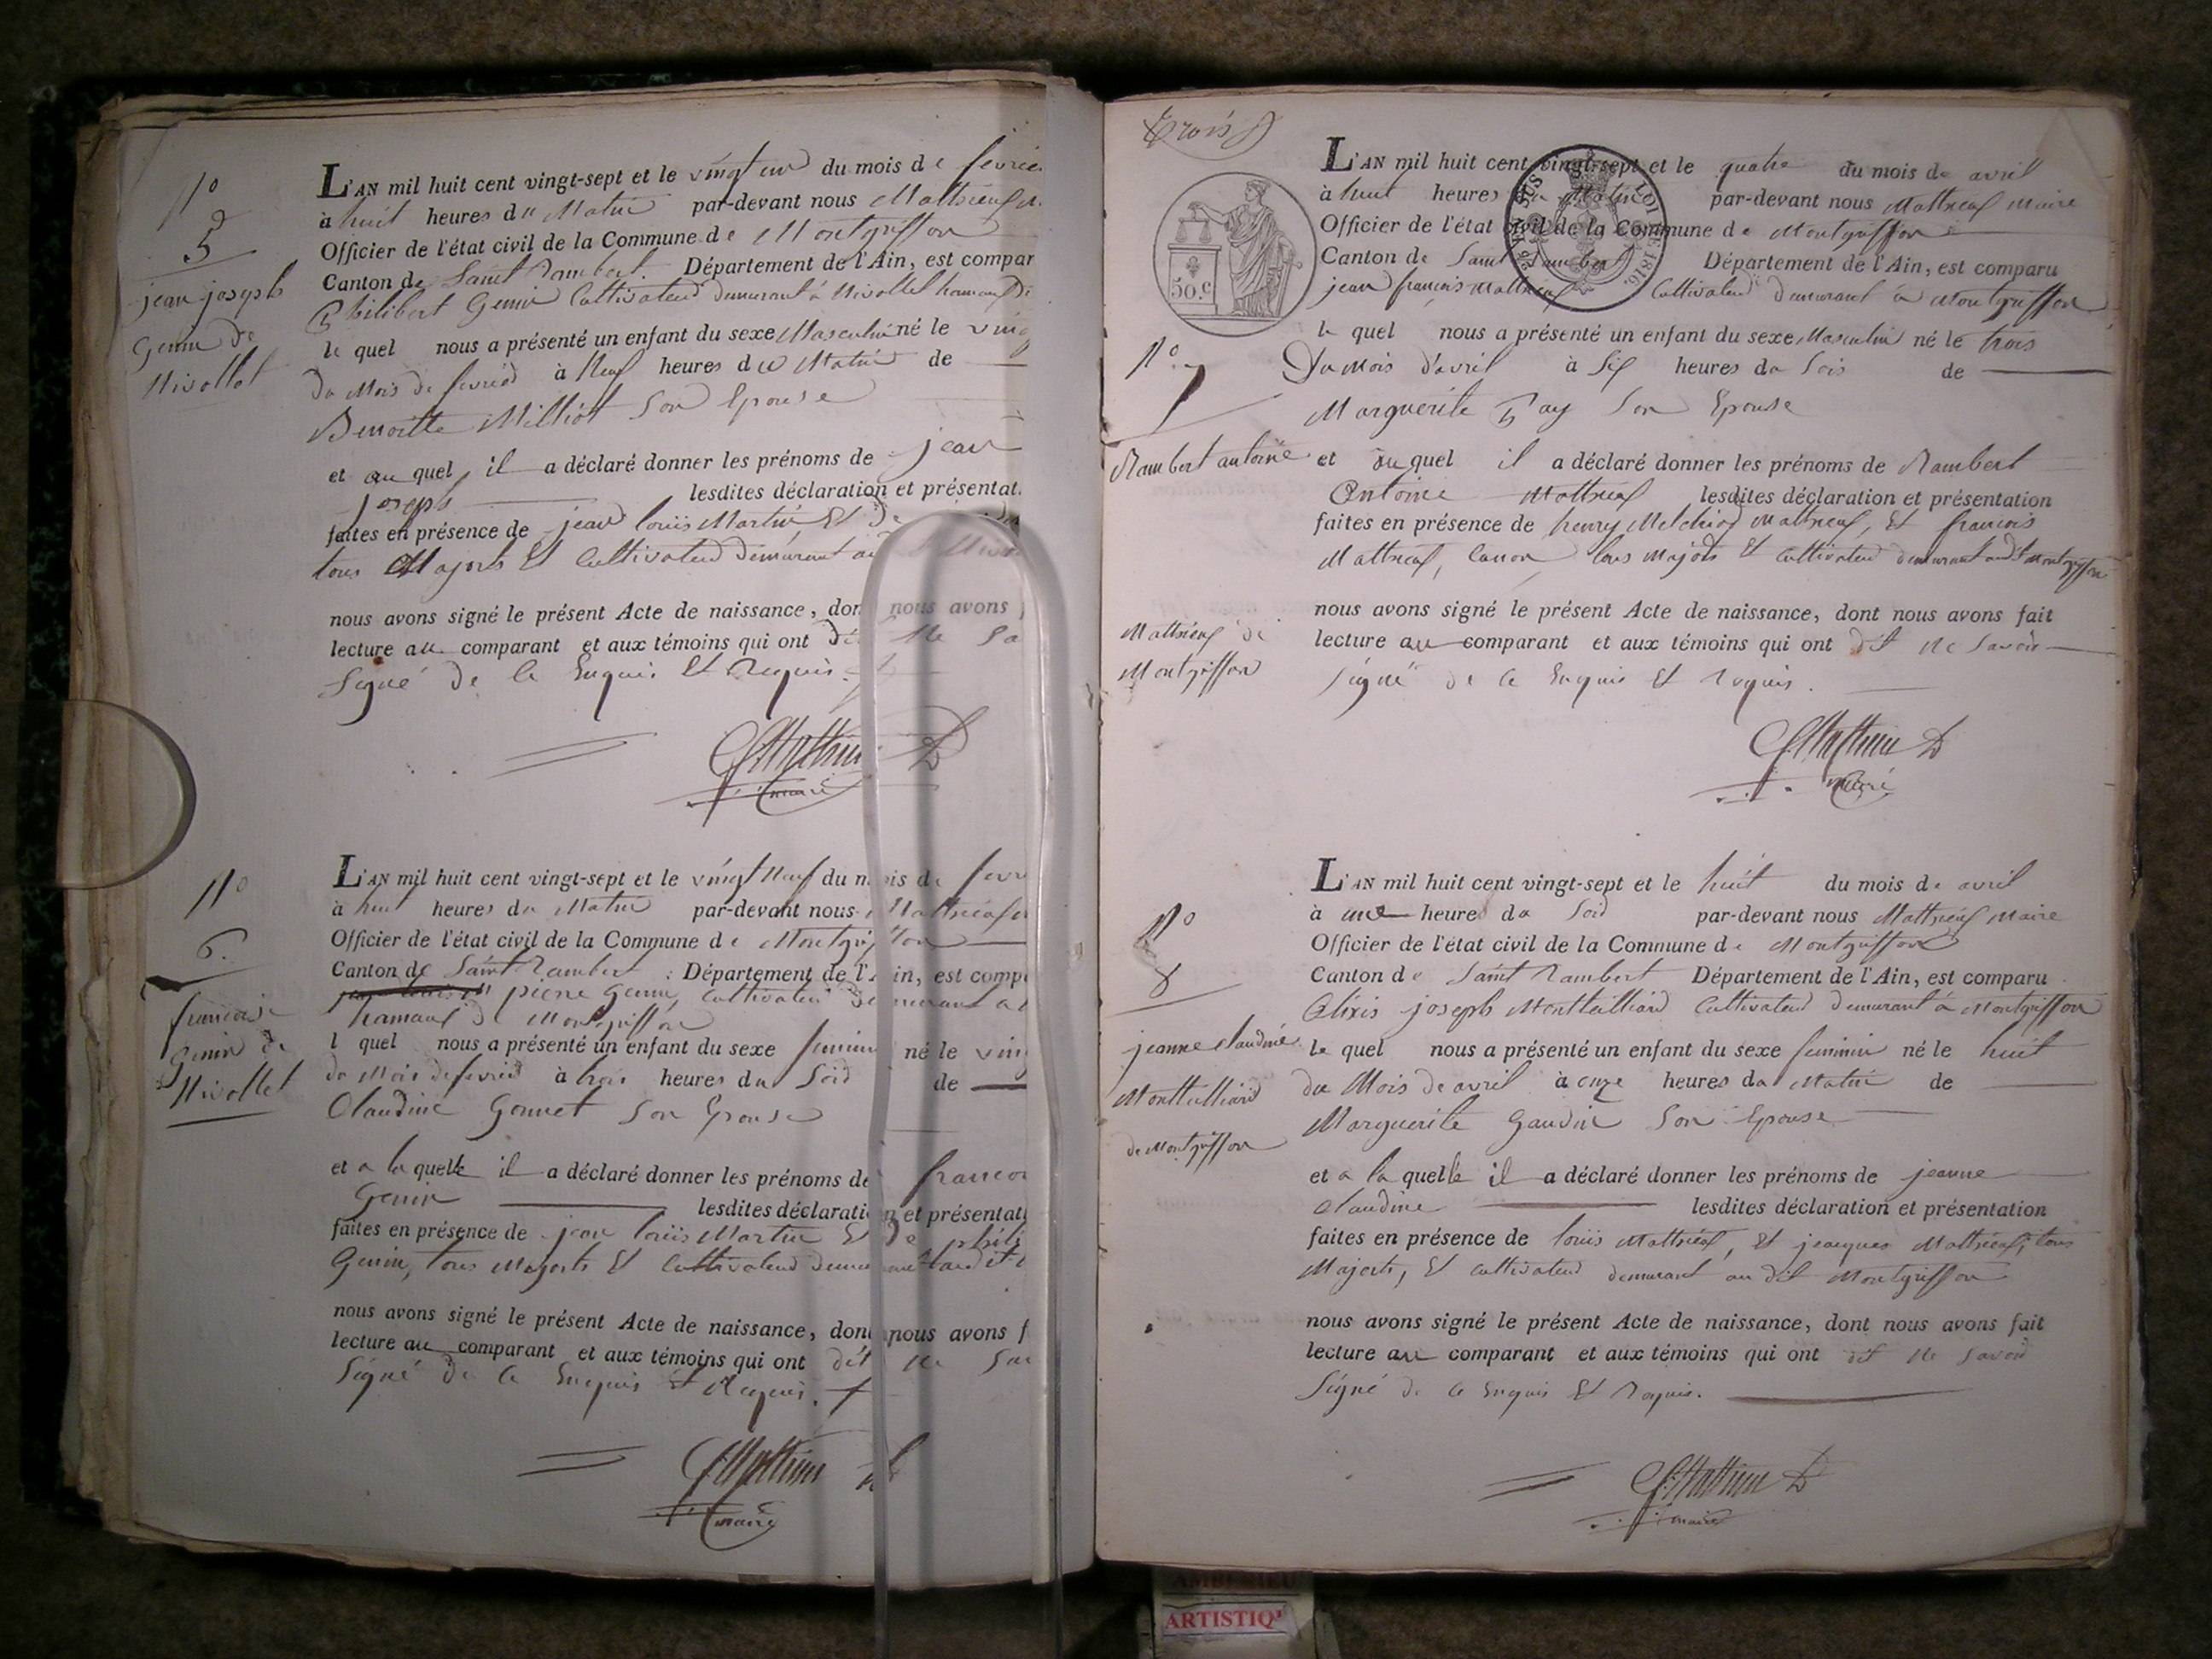 N°
5
jean joseph
Genin de
Nivollet
L'AN mil huit cent vingt-sept et le vingt un du mois de fevrier
à huit heures du Matin par-devant nous Mattrieux
Officier de l'état civil de la Commune de Montgriffon
Canton de Saint Rambert. Département de l'Ain, est compar
Philibert Genin Cultivateur demeurant à Nivollet hameau de
le quel nous a présenté un enfant du sexe Masculin né le ving
du Mois de fevrier à Neuf heures du Matin de
Benoitte Milliot Son Epouse
et au quel il a déclaré donner les prénoms de jean
joseph lesdites déclaration et présentat.
faites en présence de jean louis Martin Et de
tous Majorts Et Cultivateur demeurant au
nous avons signé le présent Acte de naissance, dont nous avons
lecture au comparant et aux témoins qui ont dit Ne Sa
Signé de Ce Enquis Et Requis.
maire
N°
6.
francoise
Genin de
Nivollet
L'AN mil huit cent vingt-sept et le vingt Neuf du mois de fevr
à huit heures du Matin par-devant nous Mattrieux
Officier de l'état civil de la Commune de Montgriffon
Canton de Saint Rambert : Département de l'Ain, est comp
pierre Genin, Cultivateur demeurant a
hamaux de Montgriffon
l quel nous a présenté un enfant du sexe feminin né le ving
du Mois de fevrier à trois heures du Soir de
Claudine Gonnet Son Epouse
et a la quelle il a déclaré donner les prénoms de francoi
Genin lesdites déclaration et présentati
faites en présence de jean louis Martin Et De phili
Genin, tous Majorts Et Cultivateur demeurant audit
nous avons signé le présent Acte de naissance, dont nous avons f
lecture au comparant et aux témoins qui ont dit ne Sav
Signé de Ce Enquis Et Requis.
maire
Trois
50.c
EN SUS
LOI DE 1816
N°. 7
Rambert antoine
Mattrieux de
Montgriffon
L'AN mil huit cent vingt-sept et le quatre du mois de avril
à huit heures du Matin par-devant nous Mattrieux Maire
Officier de l'état civil de la Commune de Montgriffon
Canton de Saint Rambert Département de l'Ain, est comparu
jean françois Mattrieux Cultivateur demeurant à Montgriffon
le quel nous a présenté un enfant du sexe Masculin né le trois
Du Mois d'avril à Six heures du Soir de
Marguerite Pay Son Epouse
et au quel il a déclaré donner les prénoms de Rambert
Antoine Mattrieux lesdites déclaration et présentation
faites en présence de henry Melchior Mattrieux, Et francois
Mattrieux, tous Majorts Et Cultivateur demeurant audit Montgriffon
nous avons signé le présent Acte de naissance, dont nous avons fait
lecture au comparant et aux témoins qui ont dit Ne Savoir
Signé de Ce Enquis Et Requis.
maire
N°
8
jeanne Claudine
Monttelliard
de Montgriffon
L'AN mil huit cent vingt-sept et le huit du mois de avril
à une heure du Soir par-devant nous Mattrieux Maire
Officier de l'état civil de la Commune de Montgriffon
Canton de Saint Rambert Département de l'Ain, est comparu
Alixis joseph Monttelliard Cultivateur demeurant à Montgriffon
le quel nous a présenté un enfant du sexe feminin né le huit
du Mois de avril à onze heures du Matin de
Marguerite Gaudin Son Epouse
et a la quelle il a déclaré donner les prénoms de jeanne
Claudine lesdites déclaration et présentation
faites en présence de louis Mattrieux, Et jeacques Mattrieux, tous
Majorts, Et Cultivateur demeurant au dit Montgriffon
nous avons signé le présent Acte de naissance, dont nous avons fait
lecture au comparant et aux témoins qui ont dit Ne Savoir
Signé de Ce Enquis Et Requis.
maire
ARTISTIQ